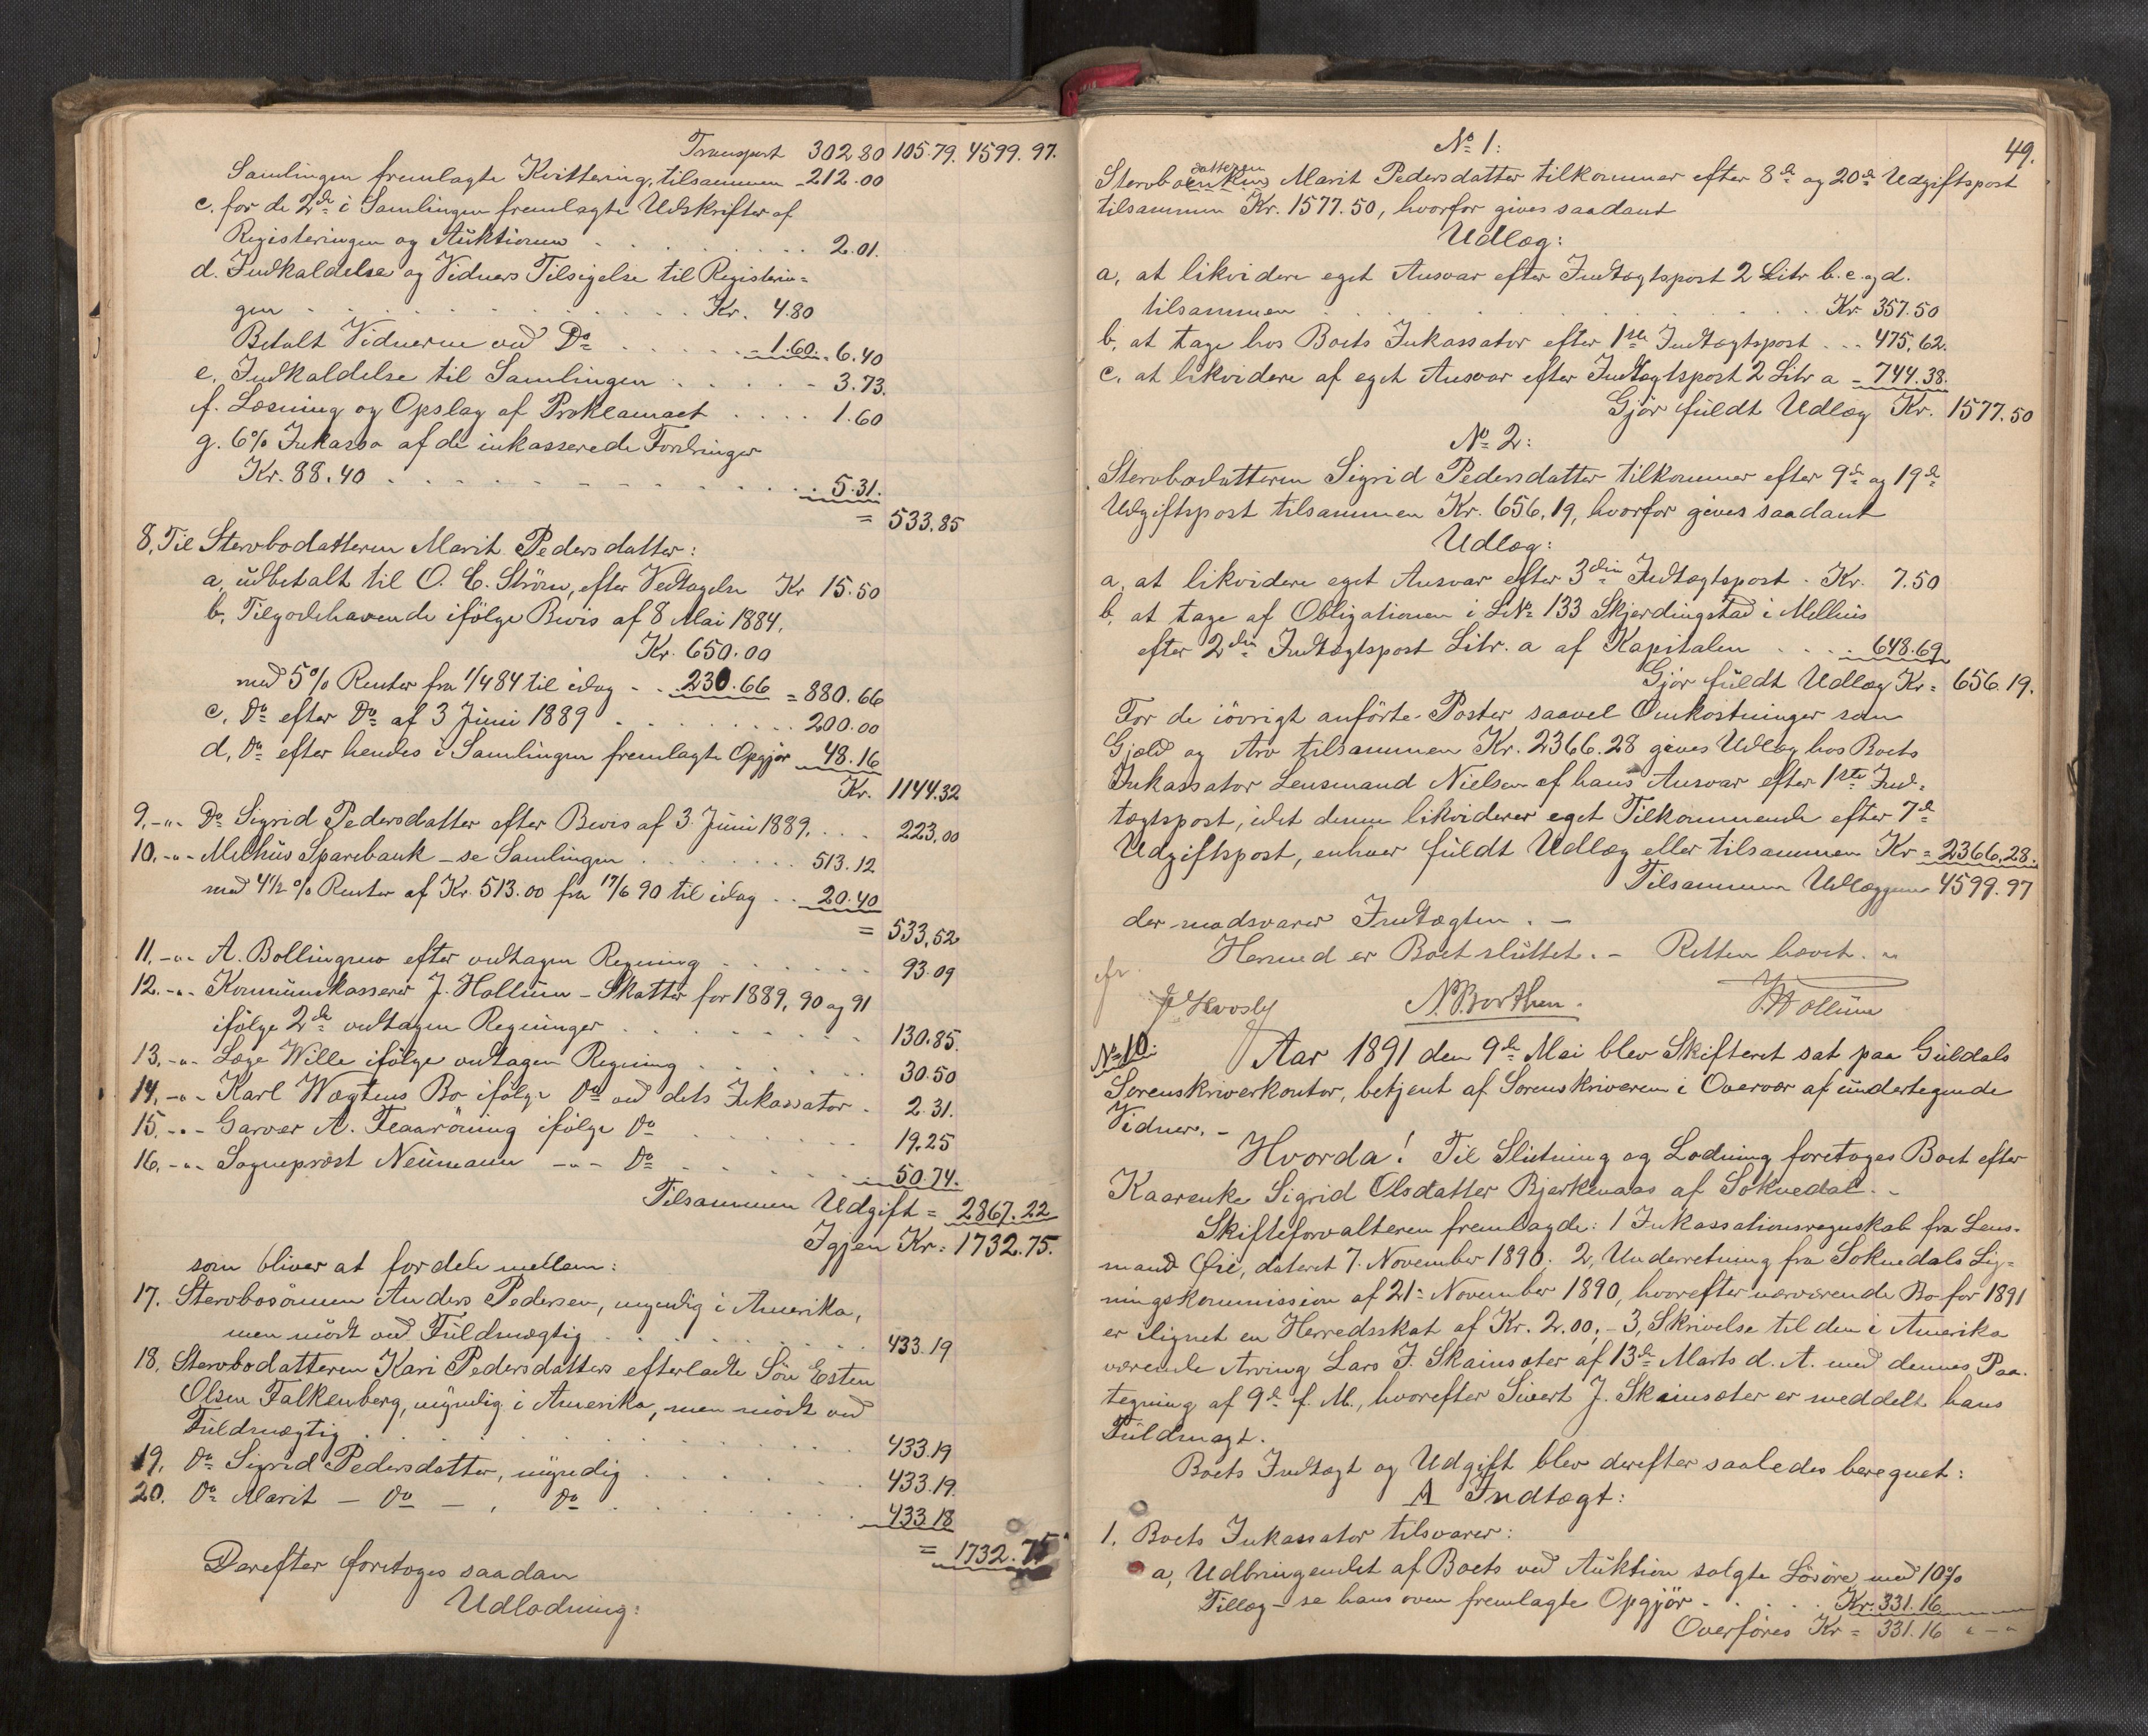 Transport 302.80 105.79. 4599.97.
Samlingen fremlagte Kvittering, tilsammen - 212.00
c. for de 2de i Samlingen fremlagte Udskrifter af
Registeringen og Auktionen . . . . . . . 2.01.
d. Indkaldelse og Vidners Tilsigelse til Registerin=
gen . . . . . . . . . . Kr. 4.80
Betalt Vidnerne ved Do . . . . . - 1.60. - 6.40
e. Indkaldelse til Samlingen . . . . . - 3.73.
f. Læsning og Opslag af Proklamaet . . . . 1.60
g. 6% Inkasso af de inkasserede Fordringer
Kr. 88.40 . . . . . . . . . . 5.31.
= 533.85
8. Til Stervbodatteren Marit Pedersdatter:
a, udbetalt til O. E. Ström, efter Vedtagelse Kr 15.50
b. Tilgodehavende ifölge Bevis af 8 Mai 1884,
Kr. 650.00
med 5% Renter fra 1/4 84 til idag - . 230.66 = 880.66
c. Do efter Do af 3 Juni 1889 . . . . . . 200.00
d, Do efter hendes i Samlingen fremlagte Opgjör 48.16
Kr. 1144.32
9. -"- Do Sigrid Pedersdatter efter Bevis af 3. Juni 1889. . . . 223.00
10. -"- Melhus Sparebank - se Samlingen . . . . . . 513.12
med 4 1/2 % Renter af Kr. 513.00 fra 17/6 90 til idag . . 20.40
= 533.52
11. -"- A. Bollingmo efter vedtagen Regning . . . . . . 93.09
12. -"- Kommunekasserer J. Hollum - Skatter for 1889, 90 og 91
ifölge 2de vedtagen Regninger . . . . . . . 130.85.
13. -"- Læge Wille ifölge vedtagen Regning . . . . . . 30.50
14. -"- Karl Wægtens Bo ifölge Do ved dets Inkassator . 2.31.
15. -"- Garver A. Flaarönning ifölge Do . . . . . . . 19.25
16. -"- Sogneprest Neumann -"- Do . . . . . . 50.74.
Tilsammen Udgift = 2867.22
Igjen Kr. = 1732.75.
som bliver at fordele mellem:
17. Stervbosönnen Anders Pedersen, myndig i Amerika,
men mödt ved Fuldmægtig . . . . . . . . 433.19
18. Stervbodatteren Kari Pedersdatters efterladte Sön Esten
Olsen Falkenberg, myndig i Amerika, men mödt ved
Fuldmægtig . . . . . . . . . . . 433.19
19. Do Sigrid Pedersdatter, myndig . . . . . . 433.19.
20. Do Marit - Do - , Do . . . . . . . 433.18
= 1732.75
Derefter foretoges saadan
Udlodning:
49.
No 1:
datteren
Stervboenkens Marit Pedersdatter tilkommer efter 8de og 20de Udgiftspost
tilsammen Kr. 1577.50, hvorfor gives saadant
Udlæg:
a, at likvidere eget Ansvar efter Indtægtspost 2 Litr b. c. og d.
tilsammen . . . . . . . . . . . Kr 357.50
b, at tage hos Boets Inkassator efter 1ste Indtægtspost . . . 475.62.
c. at likvidere af eget Ansvar efter Indtægtspost 2 Litr a - 744.38.
Gjör fuldt Udlæg Kr. 1577.50
No 2:
Stervbodatteren Sigrid Pedersdatter tilkommer efter 9de og 19de
Udgiftspost tilsammen Kr. 656.19, hvorfor gives saadant
Udlæg:
a, at likvidere eget Ansvar efter 3die Indtægtspost . Kr. 7.50
b, at tage af Obligationen i LNo 133 Skjerdingstad i Melhus
efter 2den Indtægtspost Litr. a af Kapitalen . . . . 648.69
Gjör fuldt Udlæg Kr = 656.19.
For de iövrigt anförte Poster saavel Omkostninger som
Gjæld og Arv tilsammen Kr. 2366.28 gives Udlæg hos Boets
Inkassator Lensmand Nielsen af hans Ansvar efter 1ste Ind=
tægtspost, idet denne likviderer eget Tilkommende efter 7de
Udgiftspost, enhver fuldt Udlæg eller tilsammen Kr = 2366.28.
Tilsammen Udlæggene 4599.97
der modsvarer Indtægten. -
Hermed er Boet sluttet. - Retten hævet. -
N. Borthen. Hollum
No 10. Aar 1891 den 9de Mai blev Skifteret sat paa Guldals
Sorenskriverkontor, betjent af Sorenskriveren i Overvær af undertegnede
Vidner. -
Hvorda! Til Slutning og Lodning foretoges Boet efter
Kaarenke Sigrid Olsdatter Bjerkenaas af Soknedal. -
Skifteforvalteren fremlagde: 1 Inkassationsregnskab fra Lens-
mand Öie, dateret 7. November 1890; 2, Underretning fra Soknedals Lig=
ningskommission af 21. November 1890, hvorefter nærværende Bo for 1891
er lignet en Herredsskat af Kr. 2.00; - 3, Skrivelse til den i Amerika
værende Arving Lars J. Skainsæter af 13de Marts d. A. med dennes Paa-
tegning af 9de f. M., hvorefter Sivert J. Skainsæter er meddelt hans
Fuldmagt.
Boets Indtægt og Udgift blev derefter saaledes beregnet:
A Indtægt:
1. Boets Inkassator tilsvarer:
a, Udbringendet af Boets ved Auktion solgte Lösöre med 10%
Tillæg - se hans oven fremlagte Opgjör . . . . . Kr. 331.16
Overföres Kr = 331.16 " - "